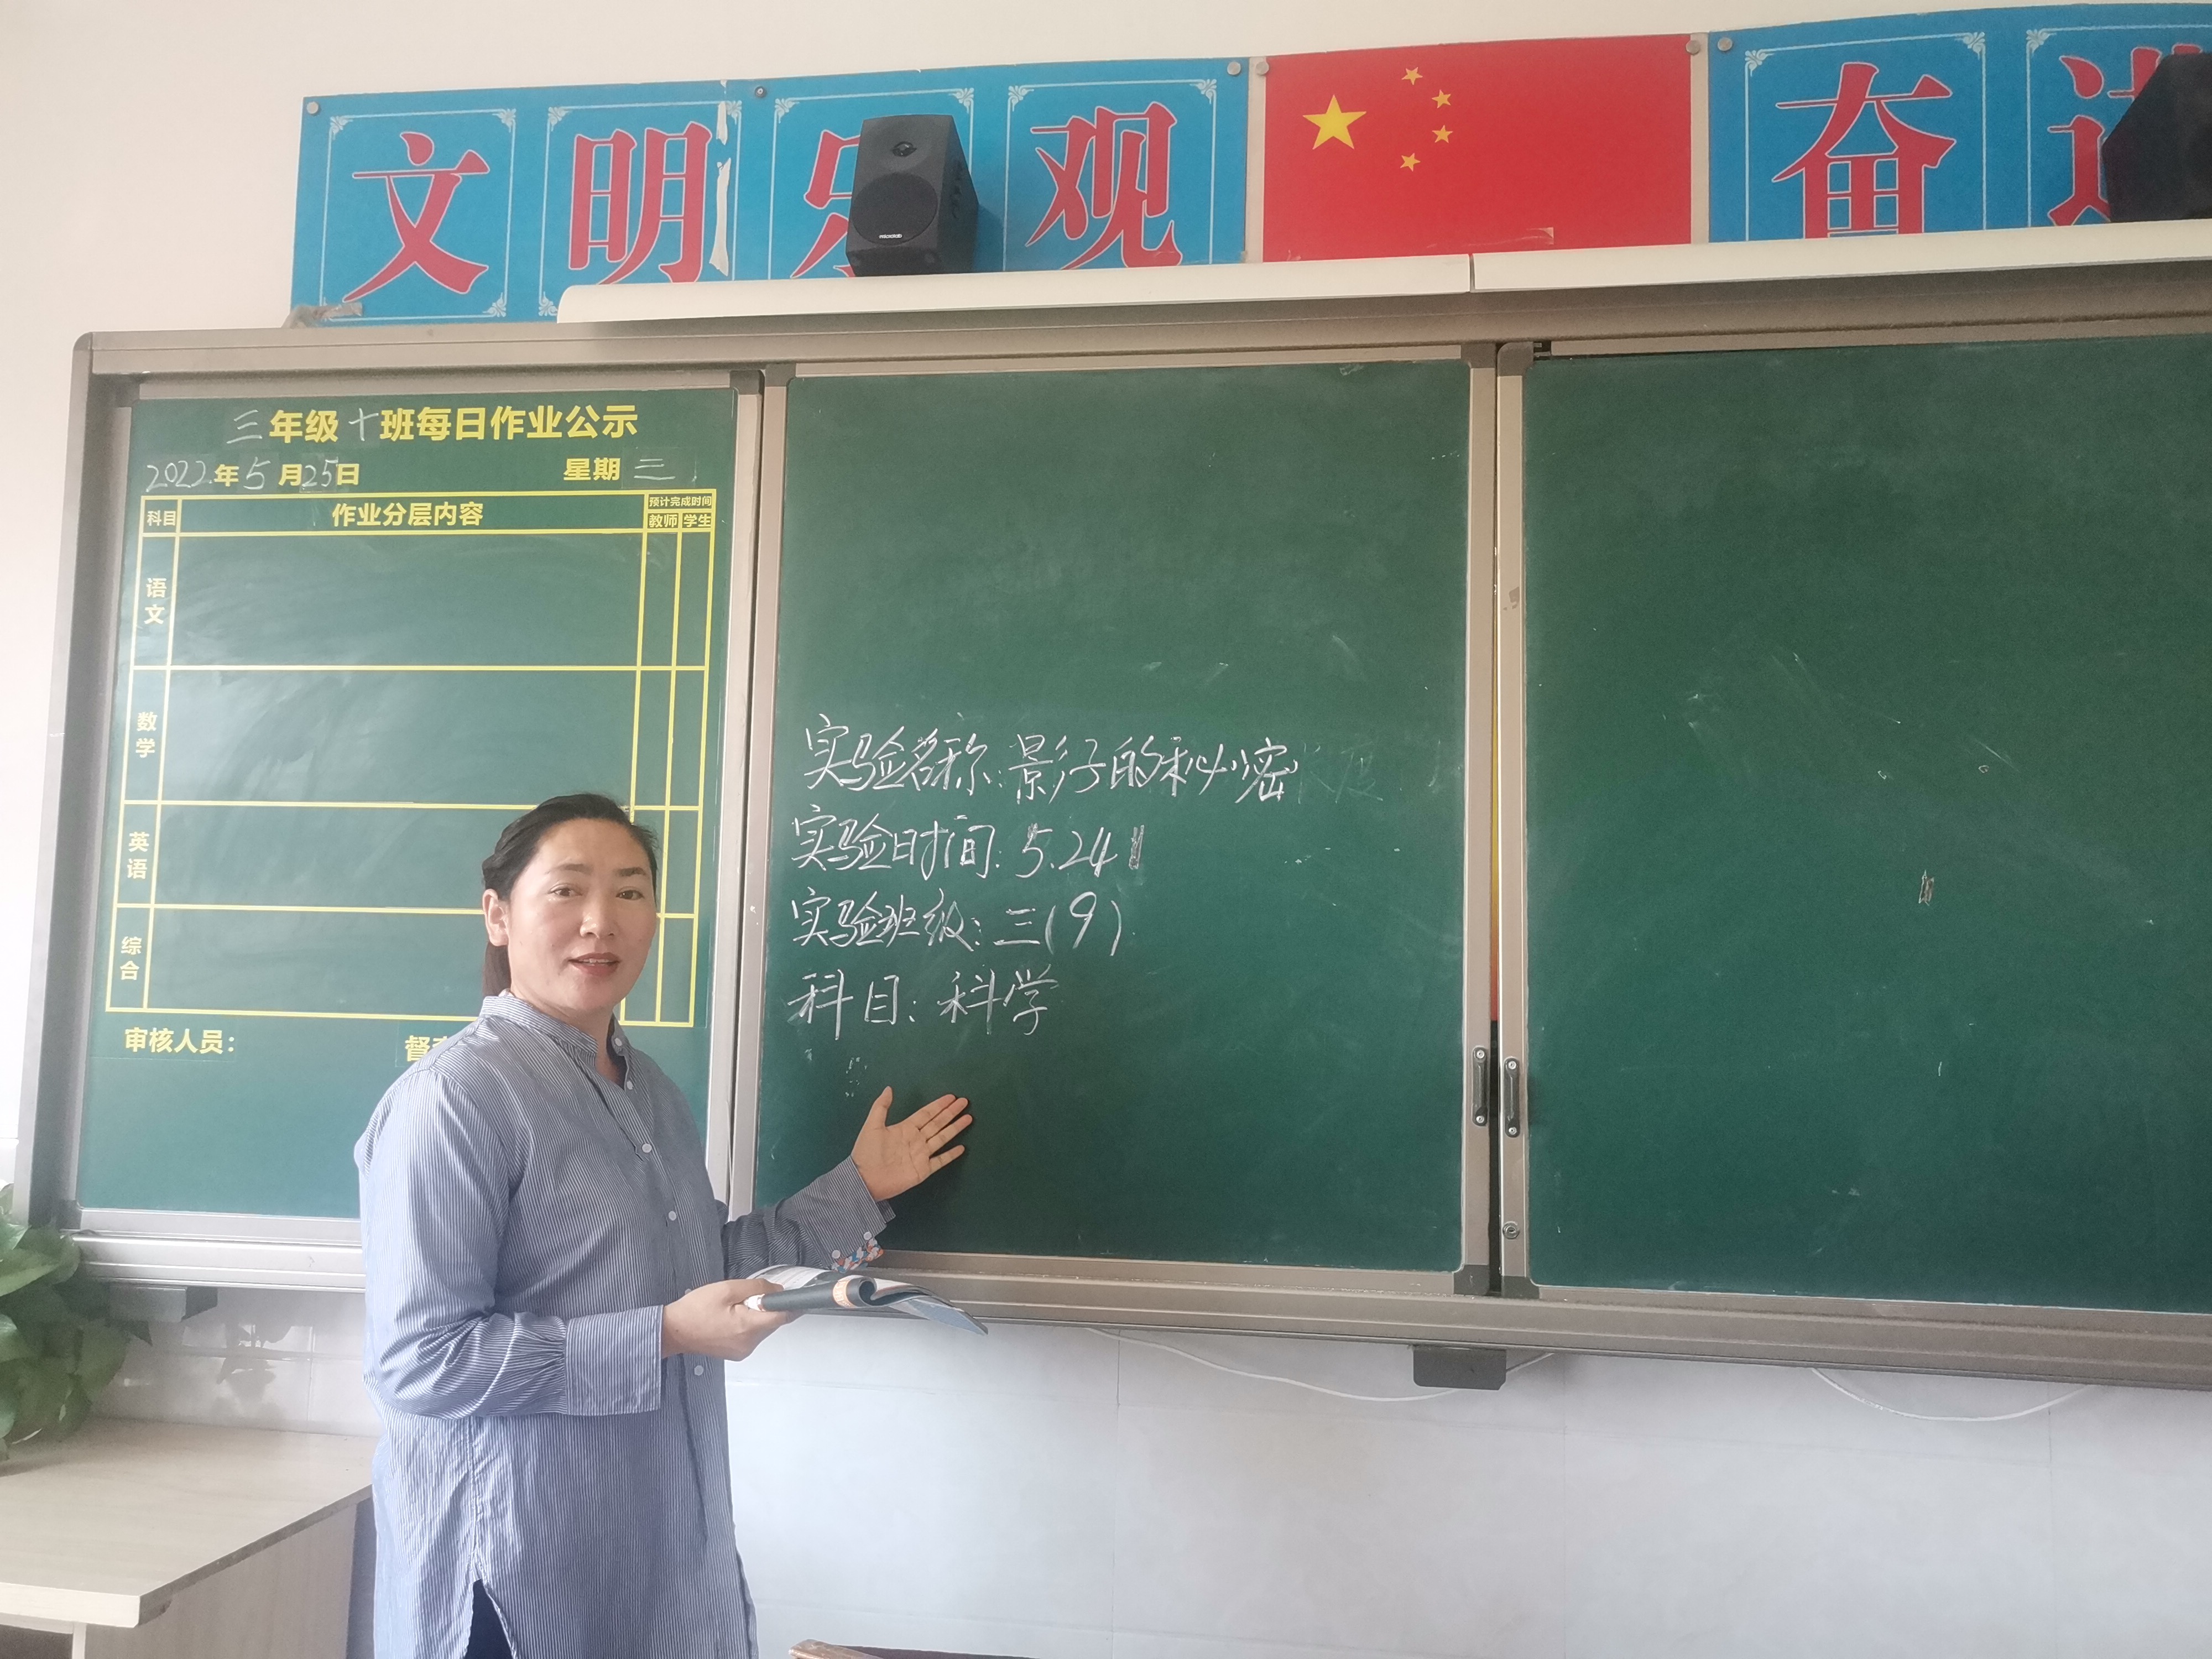 文明乐观
奋进
microlab
三年级十班每日作业公示
2022年5月25日 星期三
科目 作业分层内容 预计完成时间
教师 学生
语文
数学
英语
综合
审核人员：
督
实验名称：影子的秘密
实验时间：5.24
实验班级：三(9)
科目：科学